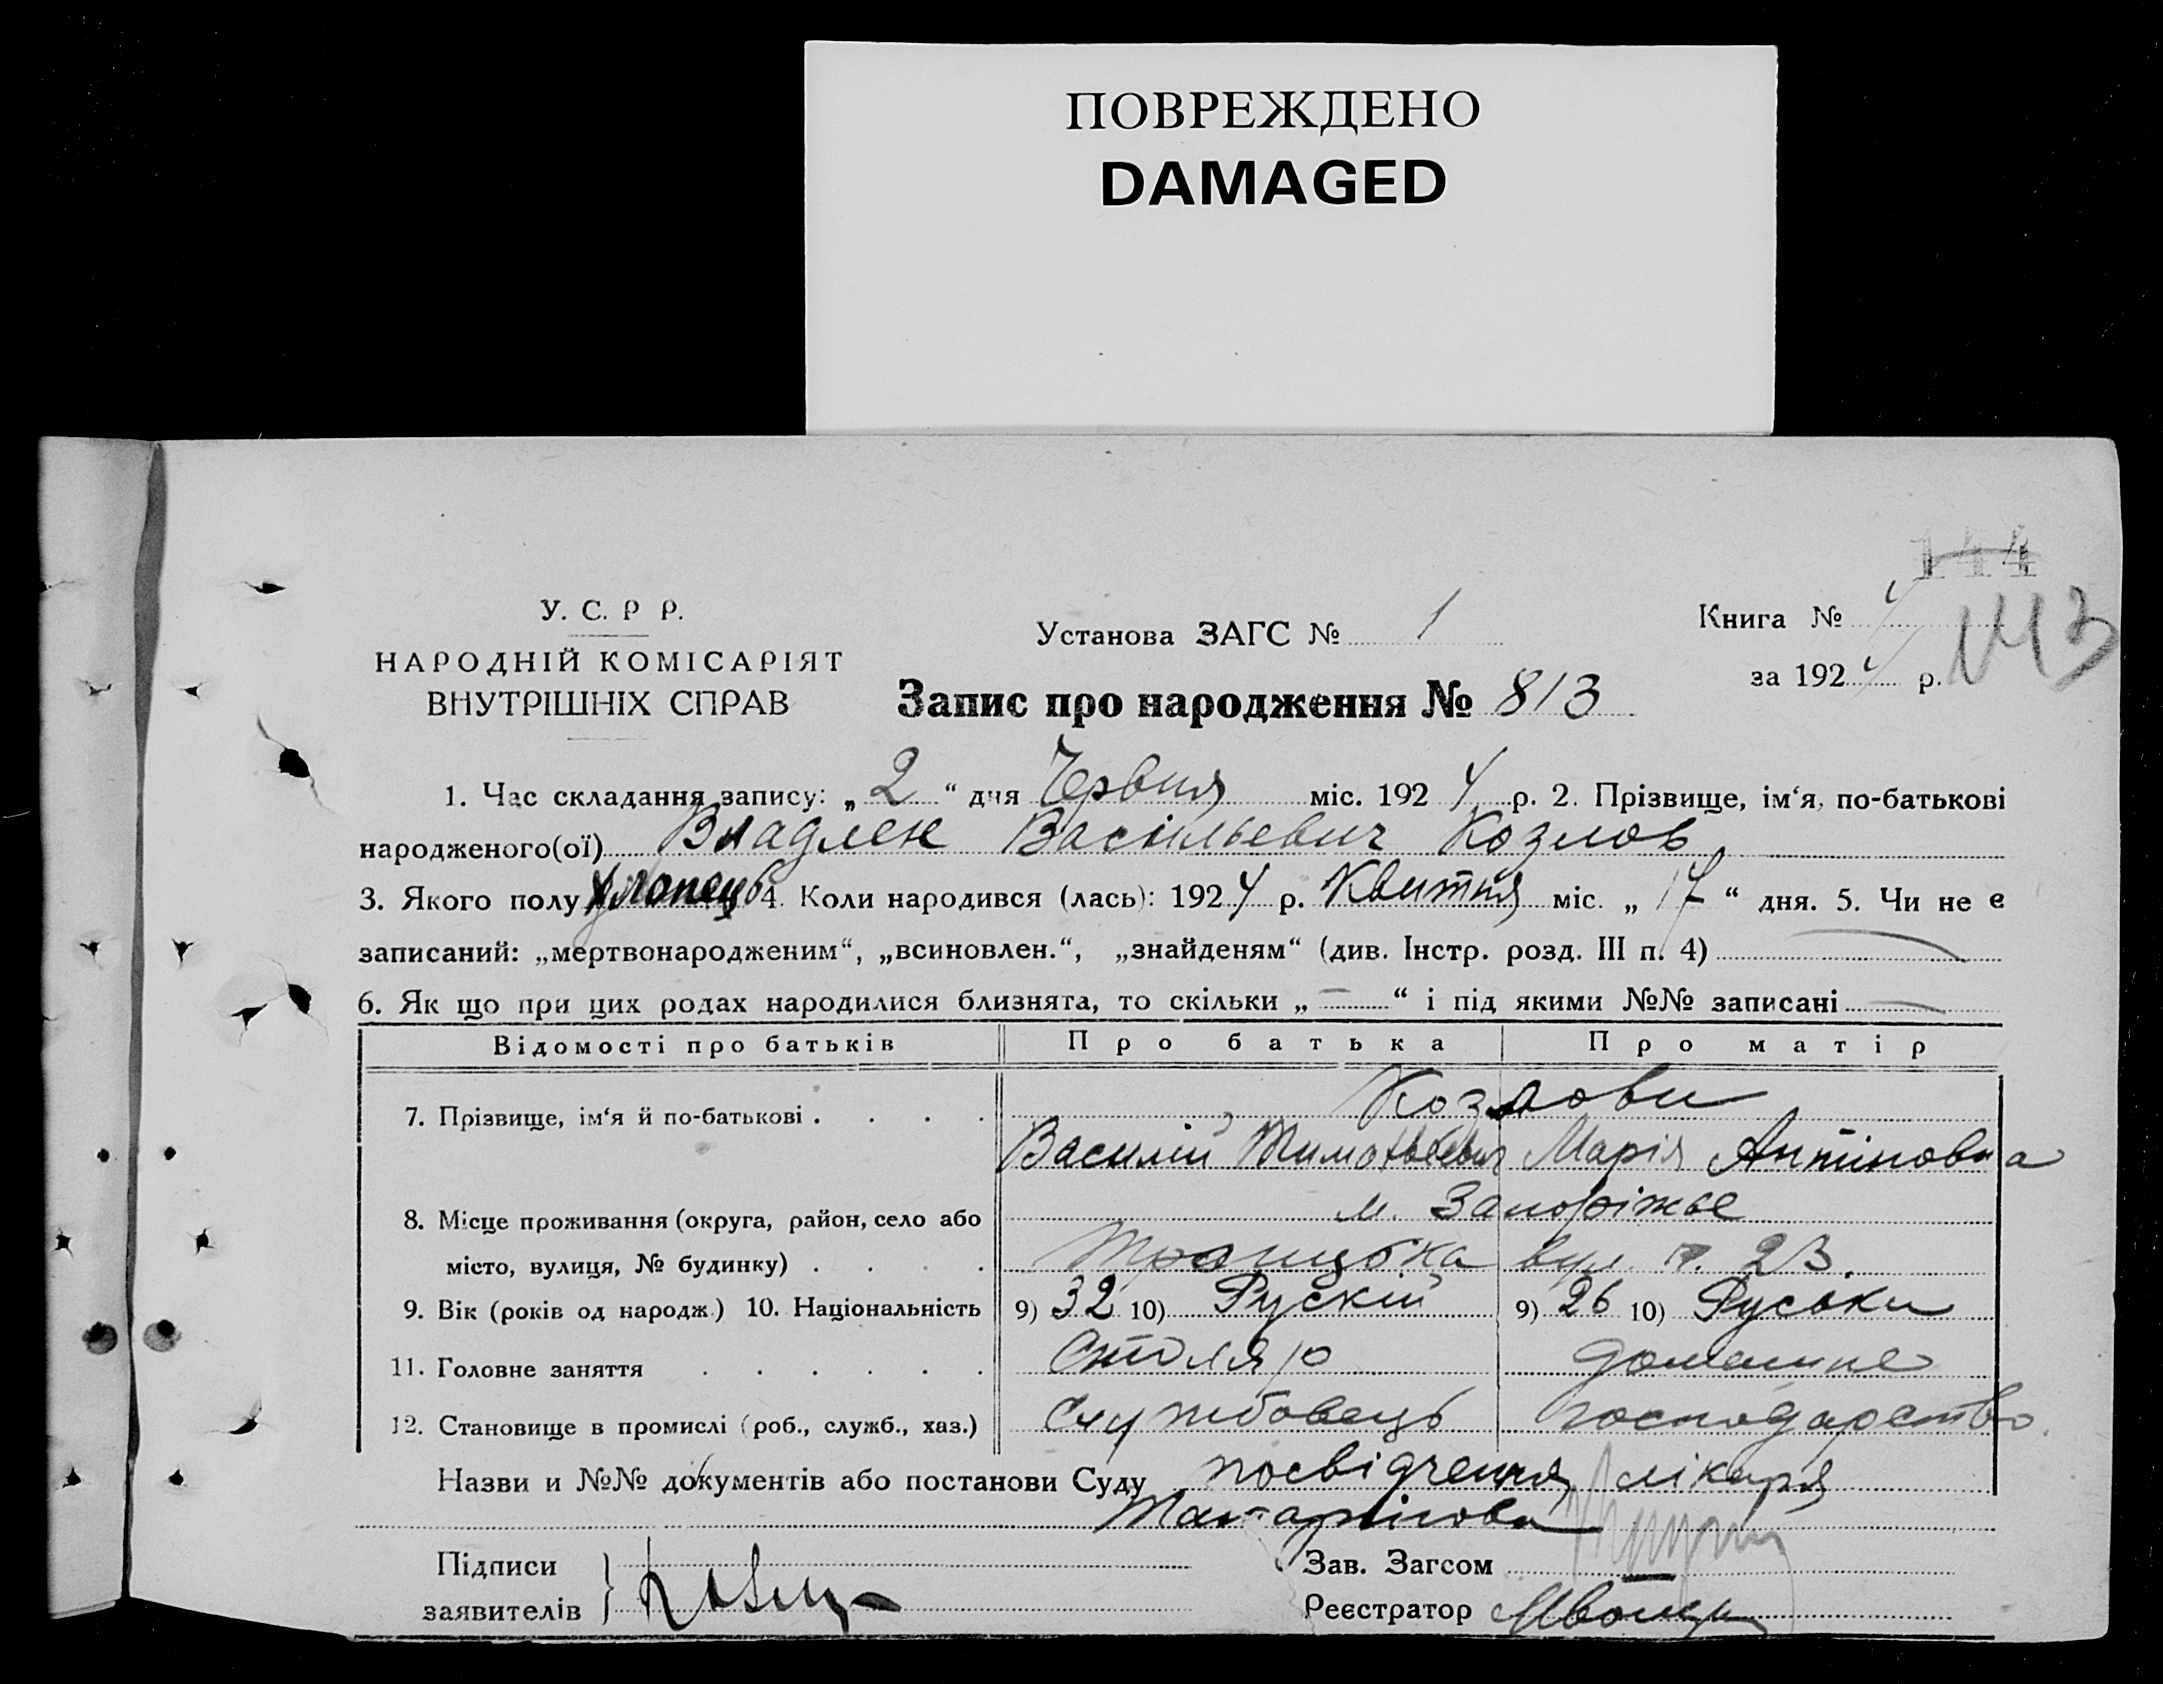 ПОВРЕЖДЕНО
DAMAGED
144
143
У. С. Р Р.
НАРОДНІЙ КОМІСАРІЯТ
ВНУТРІШНІХ СПРАВ
Установа ЗАГС № 1
Книга № 4
за 1924 р.
Запис про народження № 813
1. Час складання запису: „ 2 “ дня Червня міс. 1924 р. 2. Прізвище, ім‘я, по-батькові
народженого(ої) Владлен Васільевич Козлов
3. Якого полу хлопець 4. Коли народився (лась): 1924 р. Квитня міс. „ 17 “ дня. 5. Чи не є
записаний: „мертвонародженим“, „всиновлен.“, „знайденям“ (див. Інстр. розд. III п. 4) —
6. Як що при цих родах народилися близнята, то скільки „ — “ і під якими №№ записані —
Відомості про батьків Про батька Про матір
7. Прізвище, ім‘я й по-батькові . . . . Козлови
Василій Тимофьевич Марія Антіновна
8. Місце проживання (округа, район, село або м. Запоріжье
місто, вулиця, № будинку) . . . . Троицька вул. 23.
9. Вік (років од народж.) 10. Національність 9) 32 10) Рускій 9) 26 10) Руськи
11. Головне заняття . . . . . . Столяр домашне
12. Становище в промислі (роб., служб., хаз.) Службовець господарство.
Назви и №№ документів або постанови Суду посвідчення лікаря
Підписи
заявителів
Зав. Загсом
Реєстратор